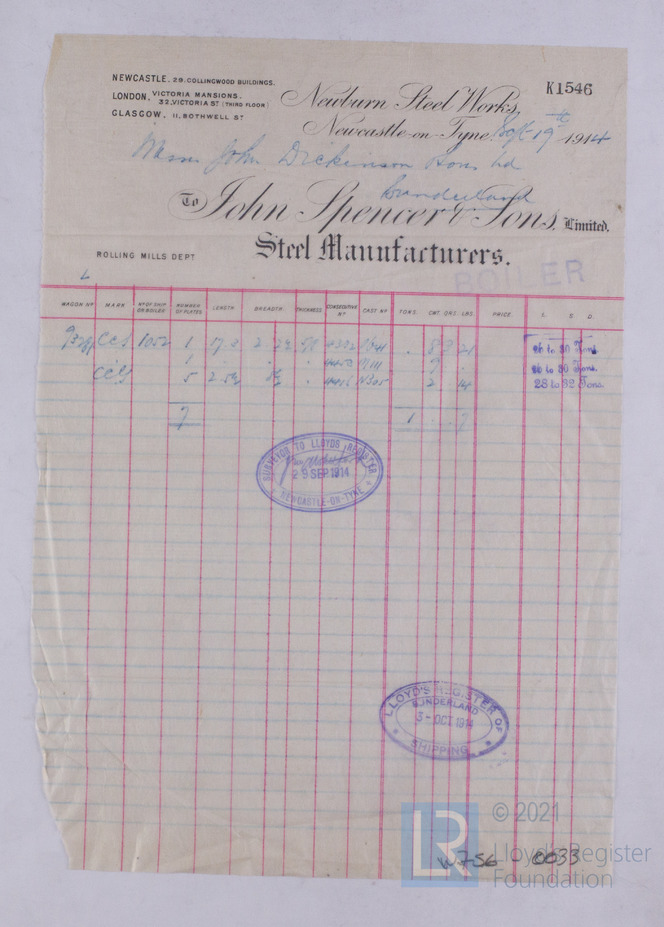 NEWCASTLE, 29. COLLINGWOOD BUILDINGS.
LONDON, VICTORIA MANSIONS.
32, VICTORIA ST (THIRD FLOOR)
GLASGOW, 11, BOTHWELL ST
K1546
Newburn Steel Works,
Newcastle-on-Tyne Sept 19th 1914
Messrs John Dickinson Sons Ld
Sunderland
To John Spencer & Sons, Limited.
Steel Manufacturers.
ROLLING MILLS DEPT
BOILER
WAGON No MARK No OF SHIP OR BOILER NUMBER OF PLATES LENGTH BREADTH THICKNESS CONSECUTIVE No CAST No TONS. CWT. QRS. LBS. PRICE. £. S. D.
CCS 1052 1 26 to 30 Tons.
1 26 to 30 Tons.
CCS 5 2 14 28 to 32 Tons.
7 1 7
SURVEYOR TO LLOYDS REGISTER
29 SEP 1914
NEWCASTLE-ON-TYNE
LLOYD'S REGISTER OF
SUNDERLAND
3 - OCT 1914
SHIPPING
LR
© 2021
Lloyd's Register
Foundation
W756 0033